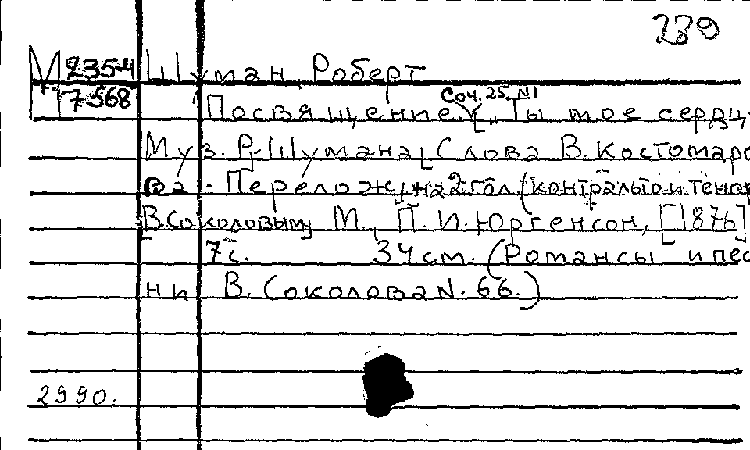 239
М 235-4 Шуман, Роберт
П 7568 Посвящение. Соч. 25, N1 "Ты мое сердц
Муз. Р. Шумана, [Слова В. Костомаро
ва. Перелож. на 2 гол. (контральто и тенор
В. Соколовым] М., П. И. Юргенсон, [1876]
7 с. 34 см. (Романсы и пес
ни В. Соколова N. 66.)
2990.